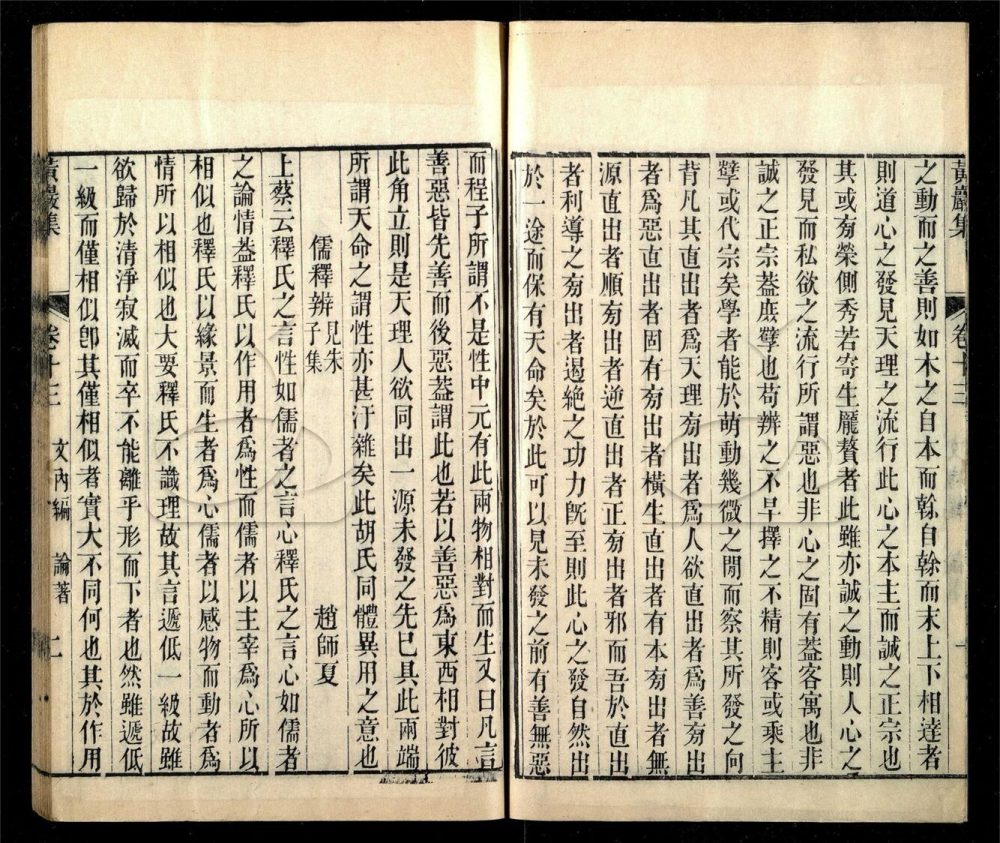 黃巖集
卷十三
一
之動而之善則如木之自本而榦自榦而末上下相達者
則道心之發見天理之流行此心之本主而誠之正宗也
其或㫄榮側秀若寄生厖贅者此雖亦誠之動則人心之
發見而私欲之流行所謂惡也非心之固有蓋客寓也非
誠之正宗蓋庶孽也苟辨之不早擇之不精則客或乘主
孽或代宗矣學者能於萌動幾微之閒而察其所發之向
背凡其直出者爲天理㫄出者爲人欲直出者爲善㫄出
者爲惡直出者固有㫄出者橫生直出者有本㫄出者無
源直出者順㫄出者逆直出者正㫄出者邪而吾於直出
者利導之㫄出者遏絶之功力旣至則此心之發自然出
於一途而保有天命矣於此可以見未發之前有善無惡
而程子所謂不是性中元有此兩物相對而生又曰凡言
善惡皆先善而後惡蓋謂此也若以善惡爲東西相對彼
此角立則是天理人欲同出一源未發之先已具此兩端
所謂天命之謂性亦甚汙雜矣此胡氏同體異用之意也
儒釋辨 見朱子集 趙師夏
上蔡云釋氏之言性如儒者之言心釋氏之言心如儒者
之論情蓋釋氏以作用者爲性而儒者以主宰爲心所以
相似也釋氏以緣景而生者爲心儒者以感物而動者爲
情所以相似也大要釋氏不識理故其言遞低一級故雖
欲歸於清淨寂滅而卒不能離乎形而下者也然雖遞低
一級而僅相似卽其僅相似者實大不同何也其於作用
黃巖集
卷十三
文內編 論著
二